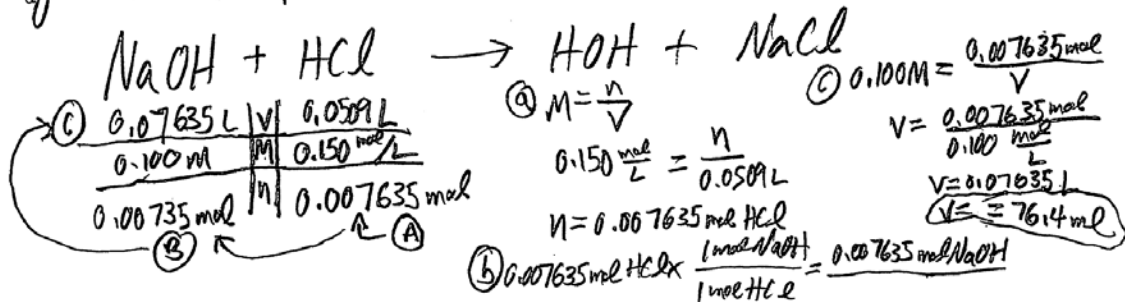 NaOH + HCl → HOH + NaCl
Ⓒ 0.07635L | V | 0.0509 L
0.100M | M | 0.150 mol/L
0.00735 mol | n | 0.007635 mol
Ⓑ Ⓐ
ⓐ M = n/V
0.150 mol/L = n/0.0509L
n = 0.007635 mol HCl
ⓑ 0.007635 mol HCl x 1 mol NaOH/1 mol HCl = 0.007635 mol NaOH
Ⓒ 0.100M = 0.007635 mol/V
V = 0.007635 mol/0.100 mol/L
V = 0.07635 L
V = = 76.4 ml